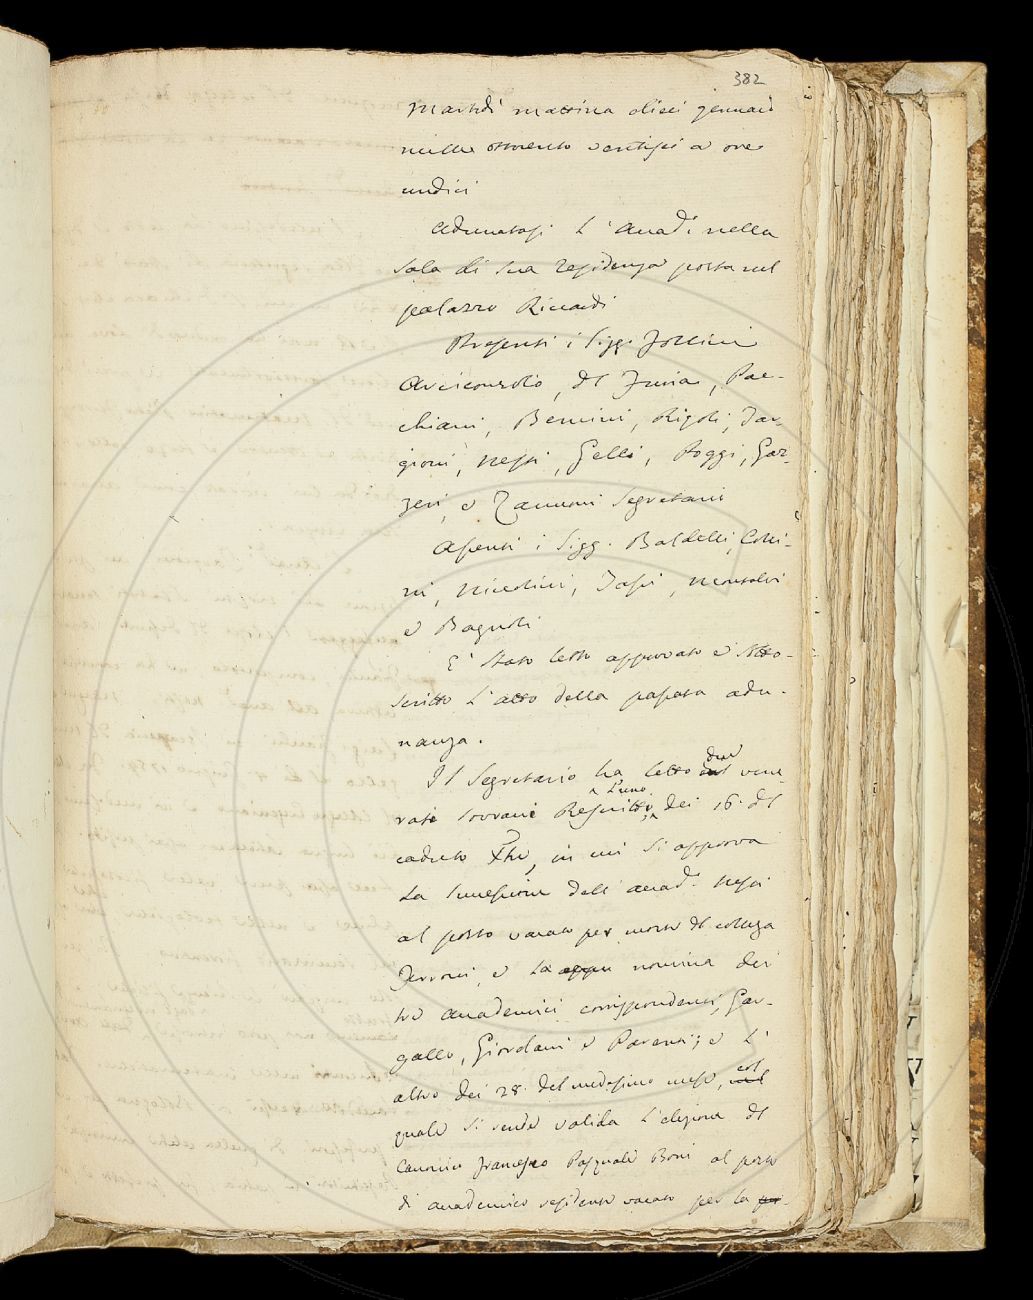 382
Martedì mattina dieci gennaio
mille ottocento ventisei a ore
undici
Adunatasi l'Accad.ª nella
Sala di sua residenza posta nel
palazzo Riccardi
Presenti i Sigg. Follini
Arciconsolo, del Furia, Pac-
chiani, Bencini, Rigoli, Tar-
gioni, Nesti, Gelli, Poggi, Gaz-
zeri, e Zannoni Segretario
Assenti i Sigg. Baldelli, Colli-
ni, Niccolini, Tassi, Montalvi
e Bagnoli
E' stato letto approvato e sotto-
scritto l'atto della passata adu-
nanza.
Il Segretario ha letto due vene-
rati sovrani Rescritti, l'uno dei 16. del
caduto Xbre, in cui si approva
la successione dell'accad.º Nesti
al posto vacato per morte del collega
Ferroni, e la nomina dei
tre accademici corrispondenti, Gar-
gallo, Giordani e Parenti; e l'
altro dei 28. del medesimo mese, col
quale si rende valida l'elezione del
Canonico Francesco Pasquale Boni al posto
di accademico residente vacato per la